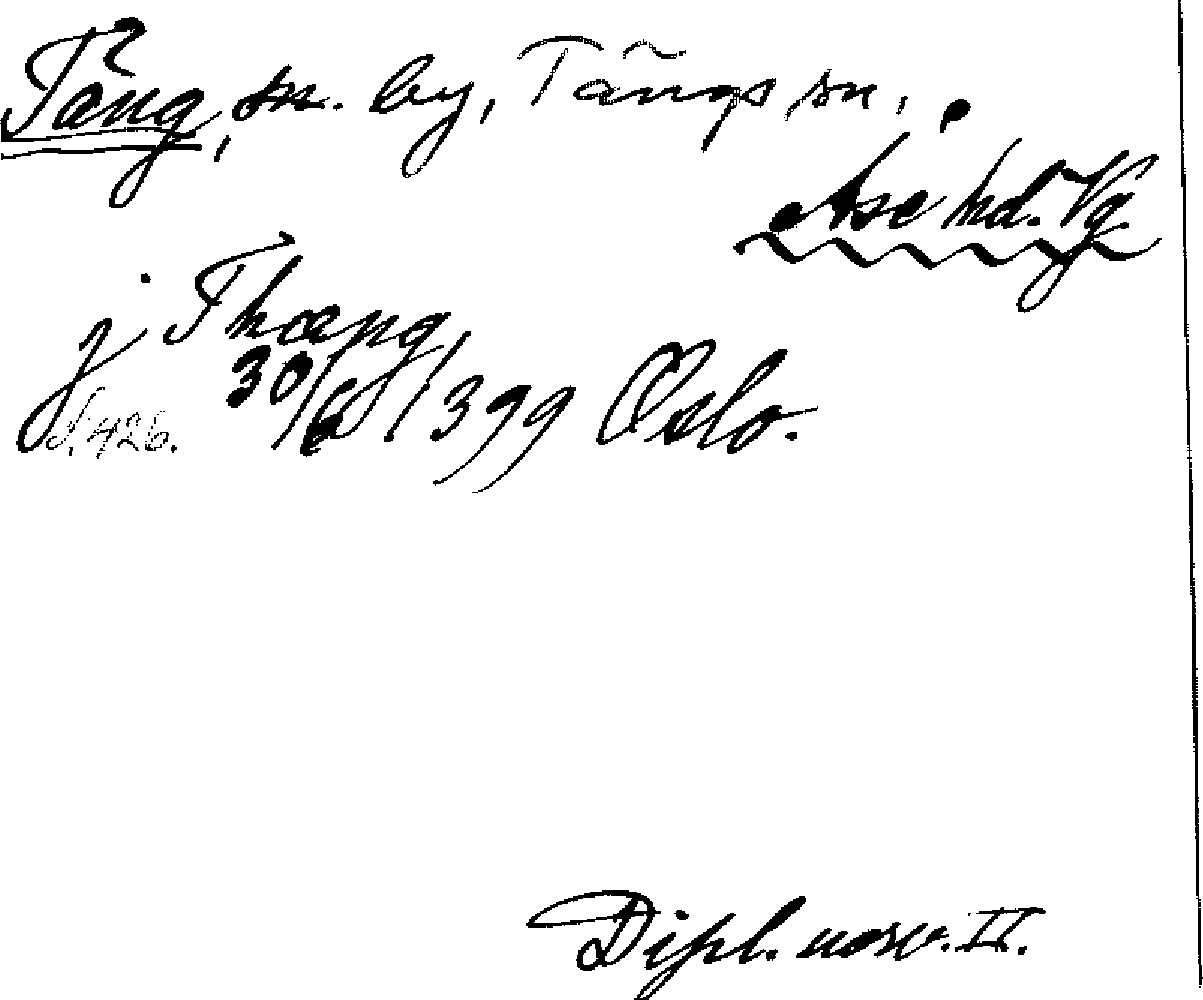 Tång, sn. by, Tångs sn.,
Åse hd. Vg.
j Thang,
s. 426. 30/6 1399 Oslo.
Dipl. norv. II.